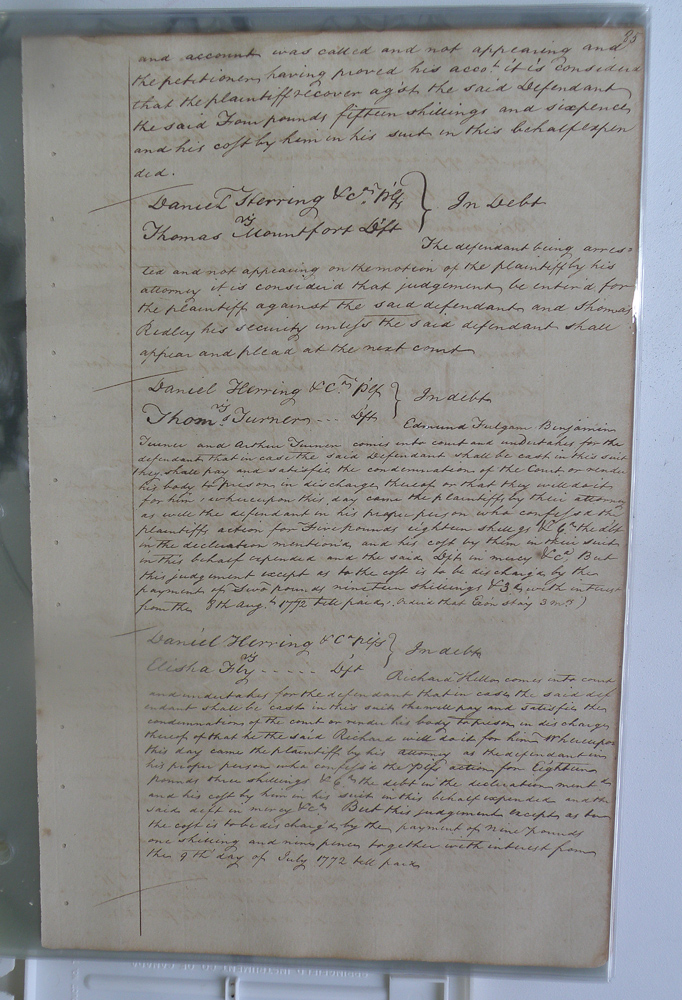 35
and account was called and not appearing and
the petitioner having proved his acco.t it is considerd
that the plaintiff recover ag.st the said Defendant
the said Four pounds fifteen shillings and sixpence
and his cost by him in his suit in this behalf expen
ded.
Daniel Herring & C.o Plfs } In Debt
vs
Thomas Mountfort Dft
The defendant being arres=
ted and not appearing on the motion of the plaintiff by his
attorney it is considerd that judgement be enterd for
the plaintiff against the said defendant and Thomas
Ridley his security unless the said defendant shall
appear and plead at the next court
Daniel Herring & C.o Plfs } In debt
vs
Thom.s Turner - - - Dft
Edmund Fulgam Benjamin
Turner and Arthur Turner comes into court and undertakes for the
defendant that in case the said Defendant shall be cast in this suit
they shall pay and satisfie the condemnation of the Court or render
his body to prison in discharge thereof or that they will do it
for him, whereupon this day came the plaintiffs by their attorney
as well the defendant in his proper person who confess'd the
plaintiffs action for Five pounds eighteen shillgs & 6.d the debt
in the declaration mention'd and his cost by them in their suit
in this behalf expended and the said Dft in mercy &c.a But
this judgement except as to the cost is to be discharg'd by the
payment of Two pounds nineteen shillings & 3d with interest
from the 8th Aug.t 1772 till paid. Orderd that Exôn stay 3 m.s )
Daniel Herring & C.o Plfs } In debt
vs
Elisha Fly - - - - - Dft
Richard comes into court
and undertakes for the defendant that in case the said def
endant shall be cast in this suit he will pay and satisfie the
condemnations of the court or render his body to prison in discharge
thereof or that he the said Richard will do it for him Whereupon
this day came the plaintiff by his attorney as the defendant in
his proper person who confess'd the Plfs action for Eighteen
pounds three shillings & 6.d the debt in the declaration ment.d
and his cost by him in his suit in this behalf expended and the
said deft in mercy &c.a But this judgement except as to
the cost is to be discharg'd by the payment of nine pounds
one shilling and nine pence together with interest from
the 9th day of July 1772 till paid